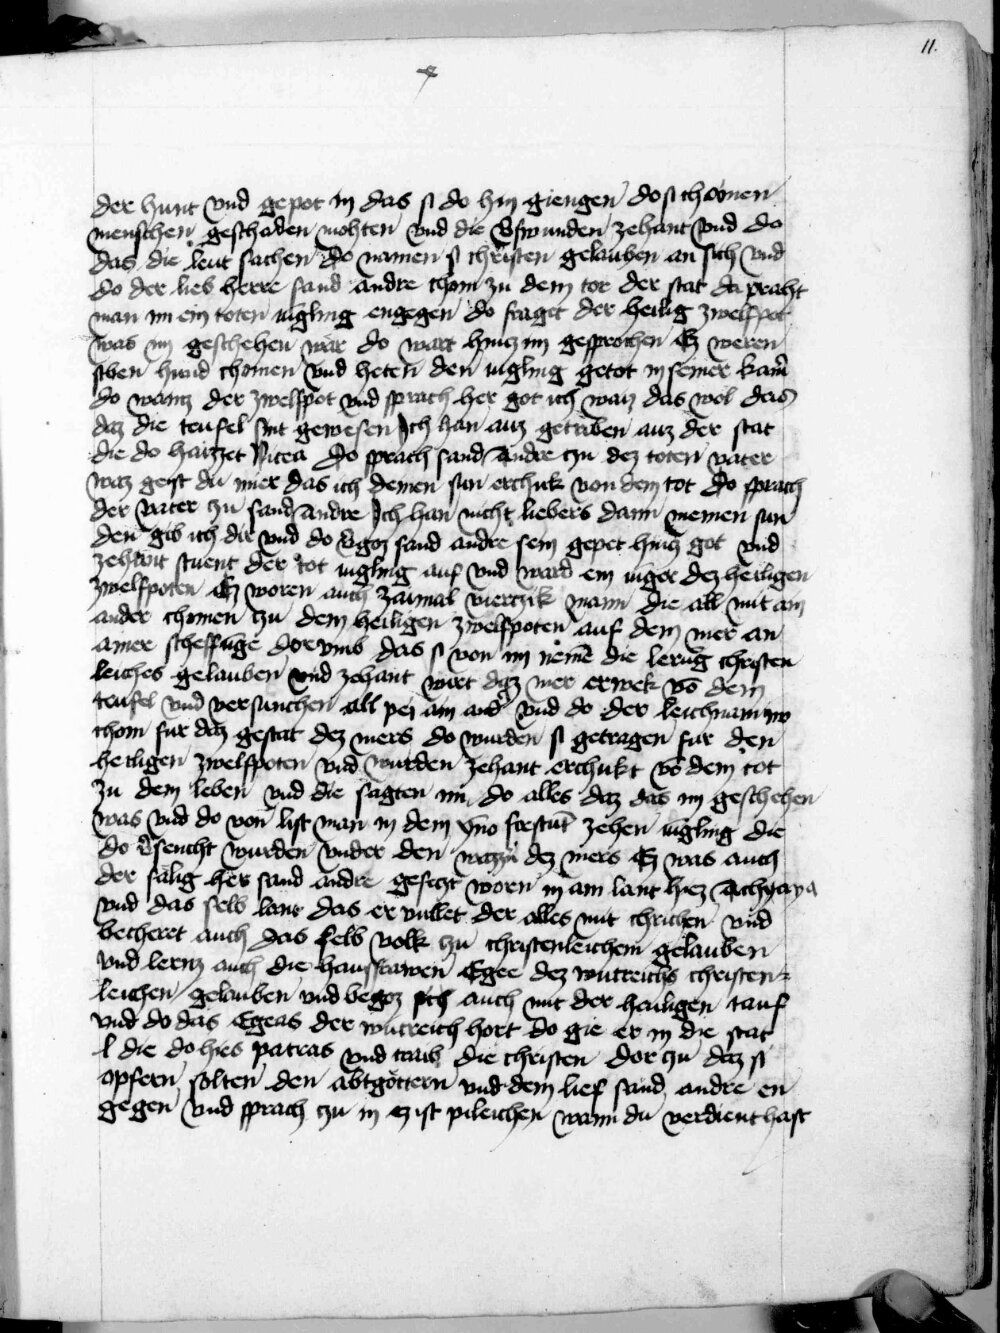 11.
der hunt vnd gepot in das si do hin giengen do si chainen
menschen geschaden mohten vnd die vswunden zehant vnd do
das die leut sachen do namen si christen gelauben an sich vnd
do der lieb herre sand andre chom zu dem tor der stat da praht
man im ein toten iugling engegen do fragt der heilig zwelfpot
was im geschehen wär do wart hincz im gesprochen Ez weren
siben hund chomen vnd heten den iugling getot in seiner kam̄
do wainz der zwelfpot vnd sprach her got ich waiz das wol das
daz die teufel sint gewesen Ich han auz getriben auz der stat
die do haizzet Nicea Do sprach sand Andre zu dez toten vater
waz geist du mier das ich deinen sun erchuk von dem tot Do sprach
der vater zu sand Andre Ich han nicht liebers dann meinen sun
den gib ich dir vnd do vigoz sand andre sein gepet hincz got vnd
zehant stuent der tot iugling auf vnd ward ein iuger dez heiligen
zwelfpoten Ez woren auch zaimal vierczik mann die all mit ain
ander chomen zu dem heiligen zwelfpoten auf dem mer an
ainer scheffūge dorvmb das si von im nēme die lerūg christen
leiches gelauben vnd zehant wirt daz mer erwek vō dem
teufel vnd versunchen all pei ain and̄ vnd do der leichnam
chom fur daz gestat dez mers do wurden si getragen fur den
heiligen zwelfpoten vnd wurden zehant erchukt vō dem tot
zu dem leben vnd die sagten im do alles daz das im geschehen
was vnd do von list man in dem zehen iugling die
do v̄sencht wurden vnder den wazzn̄ dez mers Ez was auch
der sälig her sand andre gesetzt worn in ain lant hiez Achyaya
vnd das selb lant das er vullet der alles mit chrichen vnd
becheret auch das selb volk zu christenleichem gelauben
vnd lernz auch die hausfrawen Egee dez wutreichs christen=
leichen gelauben vnd begoz sich auch mit der heiligen tauf
vnd do das Egeas der wutreich hort do gie er in die stat
l die do hies patras vnd traib die christen dor zu daz si
opfern solten den abtgöttern vnd dem lief sand andre en
gegen vnd sprach zu in ez ist pileichen wann du verdient hast